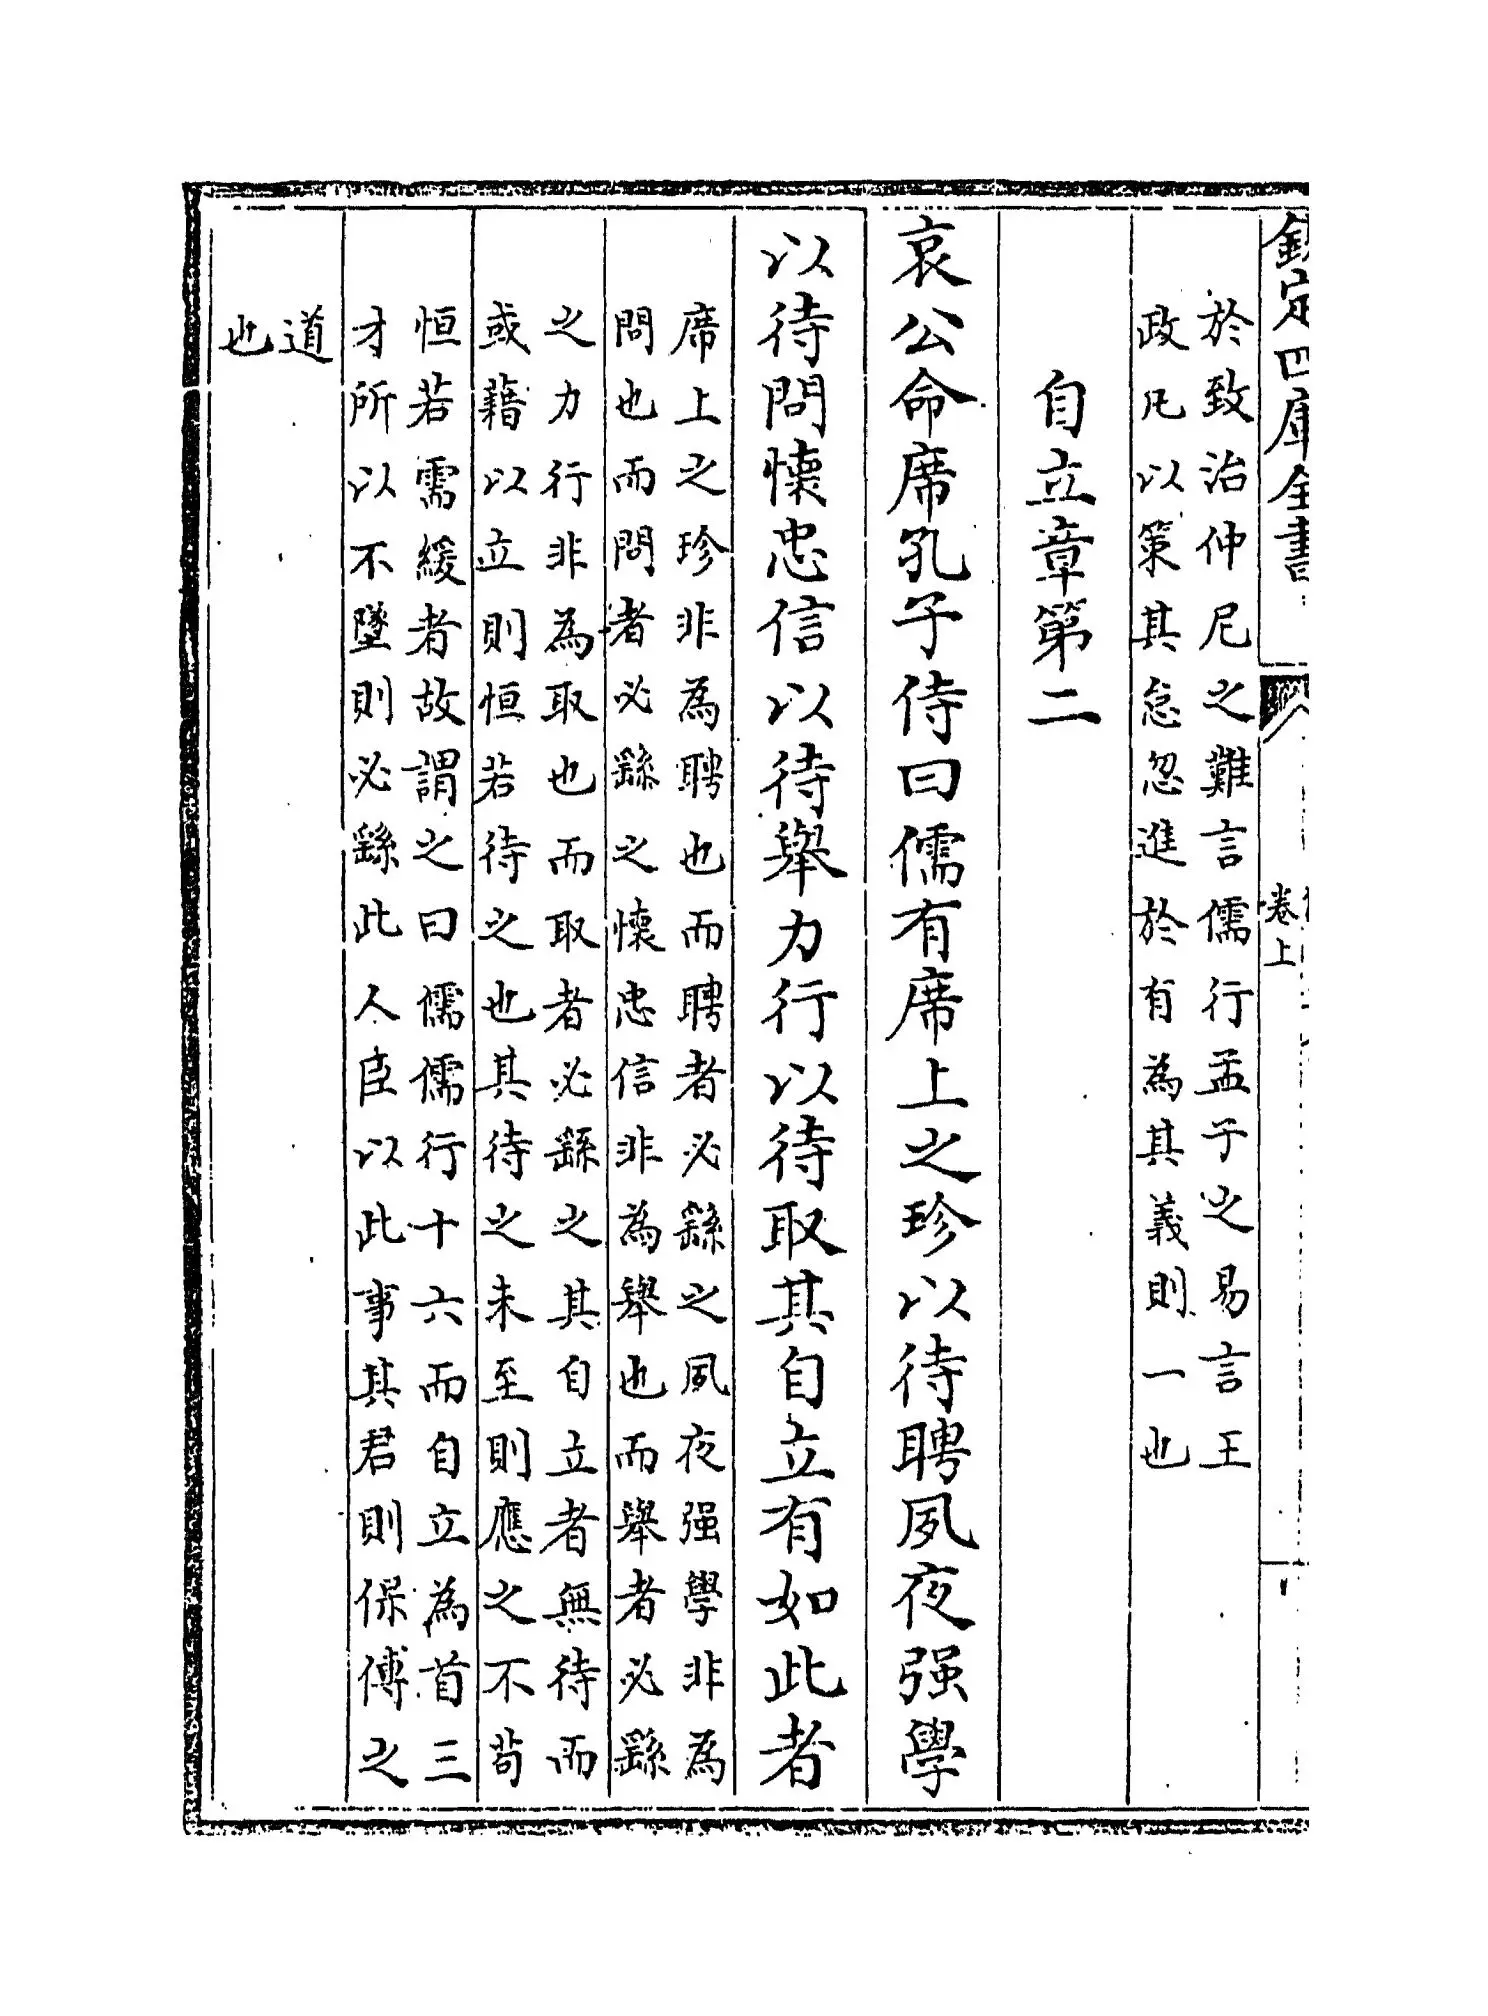 欽定四庫全書
卷上
於致治仲尼之難言儒行孟子之易言王
政凡以策其怠忽進於有為其義則一也
自立章第二
哀公命席孔子侍曰儒有席上之珍以待聘夙夜强學
以待問懷忠信以待舉力行以待取其自立有如此者
席上之珍非為聘也而聘者必繇之夙夜强學非為
問也而問者必繇之懷忠信非為舉也而舉者必繇
之力行非為取也而取者必繇之其自立者無待而
或藉以立則恒若待之也其待之未至則應之不苟
恒若需緩者故謂之曰儒儒行十六而自立為首三
才所以不墜則必繇此人臣以此事其君則保傅之
道
也